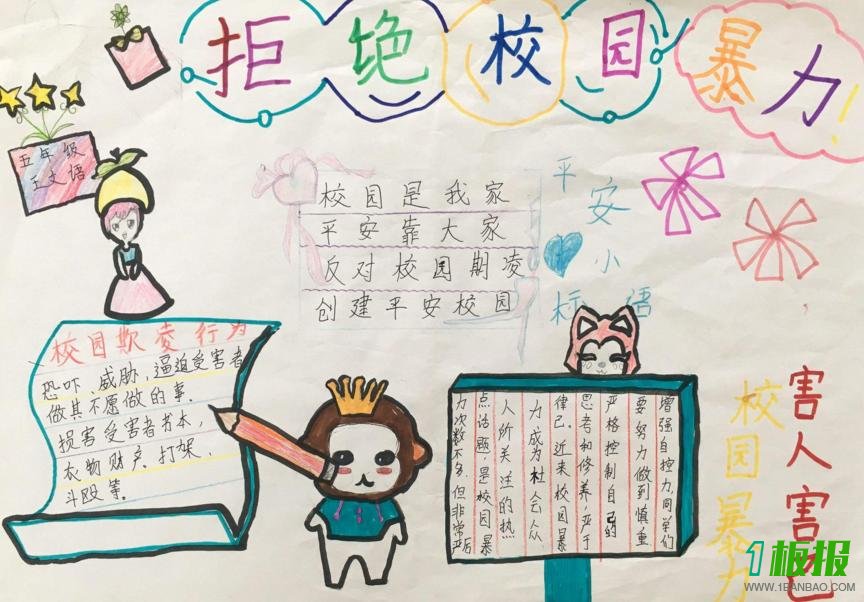 拒绝校园暴力！
五年级
王文语
校园是我家
平安靠大家
反对校园期凌
创建平安校园
平安小
标语
校园欺凌行为
恐吓、威胁,逼迫受害者
做其不愿做的事.
损害受害者书本,
衣物财产、打架、
斗殴等。
增强自控力,同学们
要努力做到慎重
严格控制自己的
思考和修养,严于
律己.近来校园暴
力成为杜会众
人所关注的热
点话题:是校园暴
力次数不多.但非常严后
害人害己
校园暴力
1板报
WWW.1BANBAO.COM